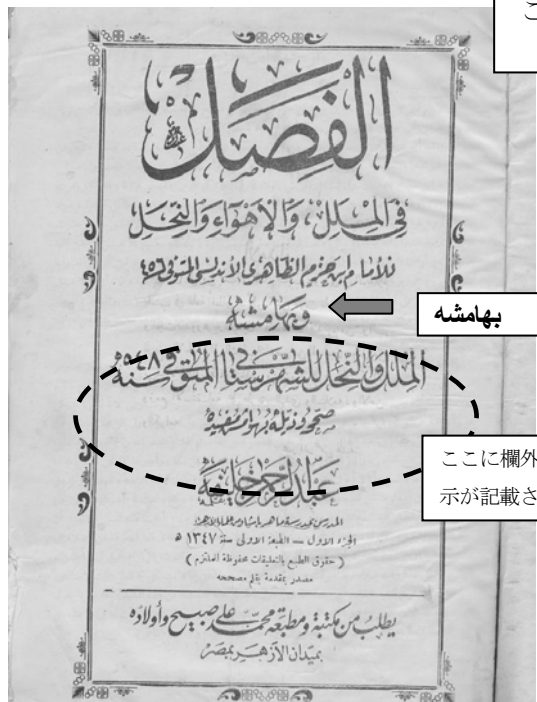 こ
الفصل
في الملل والأهواء والنحل
للإمام ابن حزم الظاهري الأندلسي المتوفى ٤٥٦
وبهامشه
بهامشه
الملل والنحل للشهرستاني المتوفى سنة ٥٤٨
صححه وذيله بهوامش مفيدة
ここに欄外
示が記載さ
عبد الرحمن خليفة
المدرس بمدرسة ماهر باشا
الجزء الاول — الطبعة الاولى سنة ١٣٤٧ ه
( حقوق الطبع بالتعليقات محفوظة للملتزم )
مصدر بمقدمة بقلم مصححه
يطلب من مكتبة ومطبعة محمد علي صبيح وأولاده
بميدان الأزهر بمصر